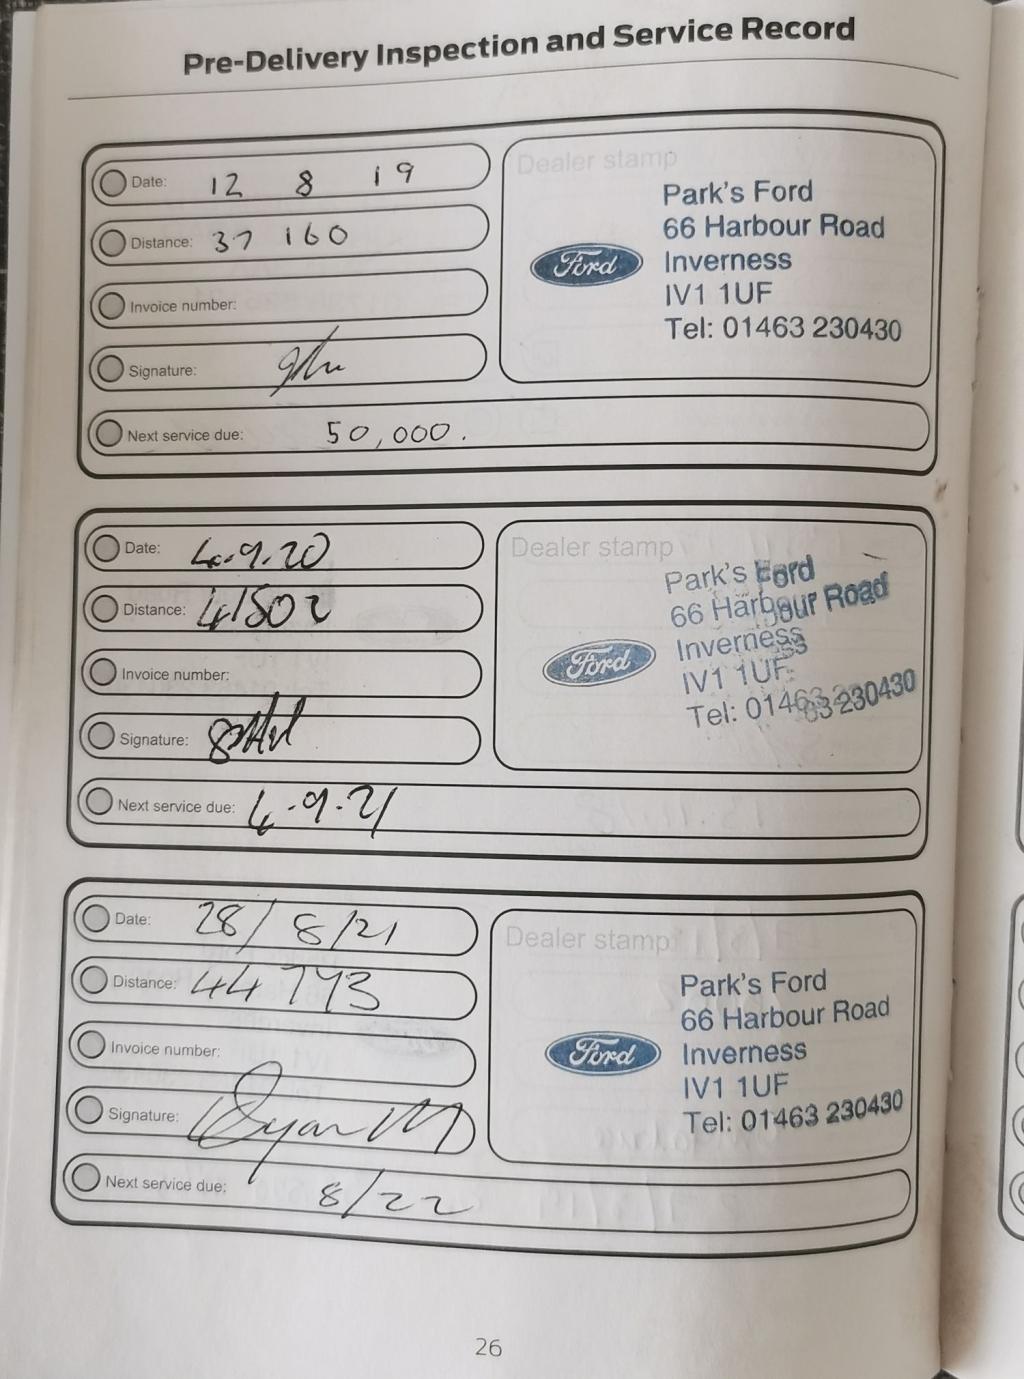 Pre-Delivery Inspection and Service Record
Date: 12 8 19
Distance: 37 160
Invoice number:
Signature:
Next service due: 50,000.
Dealer stamp
Ford
Park's Ford
66 Harbour Road
Inverness
IV1 1UF
Tel: 01463 230430
Date: 4.9.20
Distance: 41502
Invoice number:
Signature:
Next service due: 4.9.21
Dealer stamp
Ford
Park's Ford
66 Harbour Road
Inverness
IV1 1UF
Tel: 01463 230430
Date: 28/8/21
Distance: 44793
Invoice number:
Signature: Ryan M
Next service due: 8/22
Dealer stamp
Ford
Park's Ford
66 Harbour Road
Inverness
IV1 1UF
Tel: 01463 230430
26